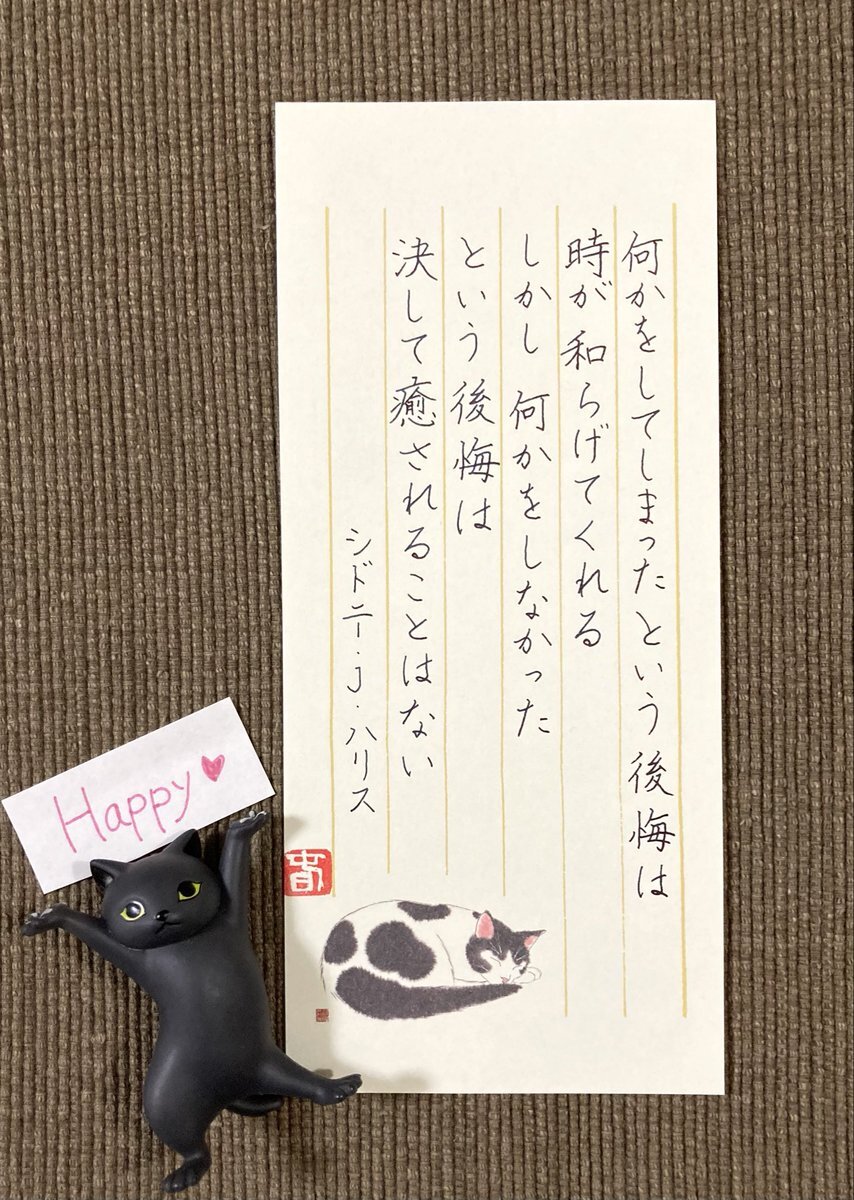 何かをしてしまったという後悔は
時が和らげてくれる
しかし 何かをしなかった
という後悔は
決して癒されることはない
シドニー・J・ハリス
Happy♥